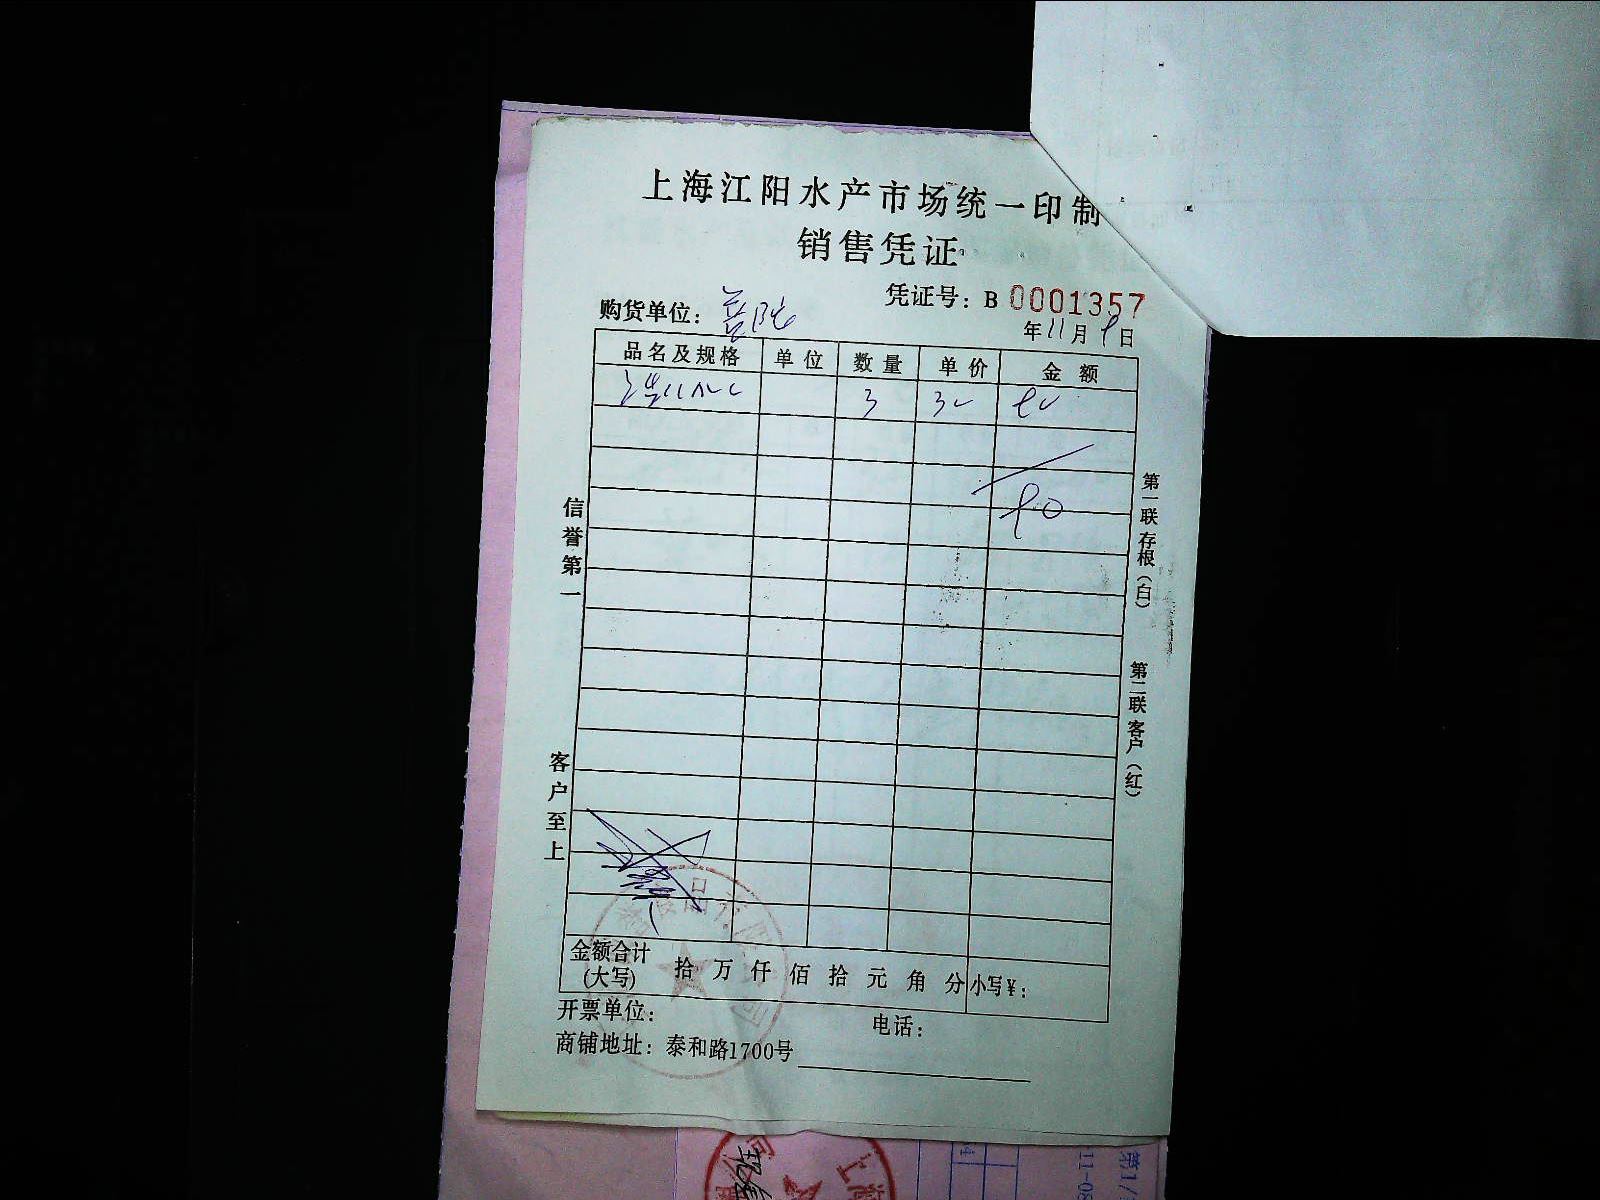 上海江阳水产市场统一印制
销售凭证
凭证号：B 0001357
购货单位：
年11月9日
品名及规格 单位 数量 单价 金额
3 30 90
90
信誉第一
客户至上
第一联存根（白）
第二联客户（红）
金额合计（大写） 拾万仟佰拾元角分 小写¥：
开票单位： 电话：
商铺地址：泰和路1700号